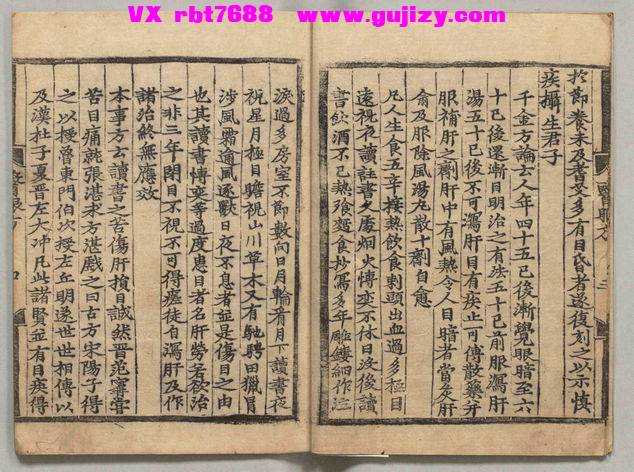 VX rbt7688 www.gujizy.com
於節養未及耆艾多有目昏者遂復刻之以示慎
疾攝生君子
千金方論云人年四十五已後漸覺眼暗至六
十已後還漸目明治之有法五十已前服瀉肝
湯五十已後不可瀉肝目有疾止可傅散藥分
服補肝之劑肝中有風熱令人目暗者當灸肝
俞及服除風湯丸散十劑自愈
凡人生食五辛接熱飲食刺頭出血過多極目
遠視夜讀註書久處烟火博奕不休日沒後讀
書飲酒不已熱飡麵食抄寫多年雕鏤細作泣
淚過多房室不節數向日月輪看月下讀書夜
視星月極目瞻視山川草木又有馳騁田獵冒
涉風霜迎風逐獸日夜不息者並是傷目之由
也其讀書博奕等過度患目者名肝勞若欲治
之非三年閉目不視不可得瘥徒自瀉肝及作
諸治終無應效
本事方云讀書之苦傷肝損目誠然晉范寗嘗
苦目痛就張湛求方湛戲之曰古方宋陽子得
之以授魯東門伯次授左丘明遂世世相傳以
及漢杜子夏晉左太冲凡此諸賢並有目疾得